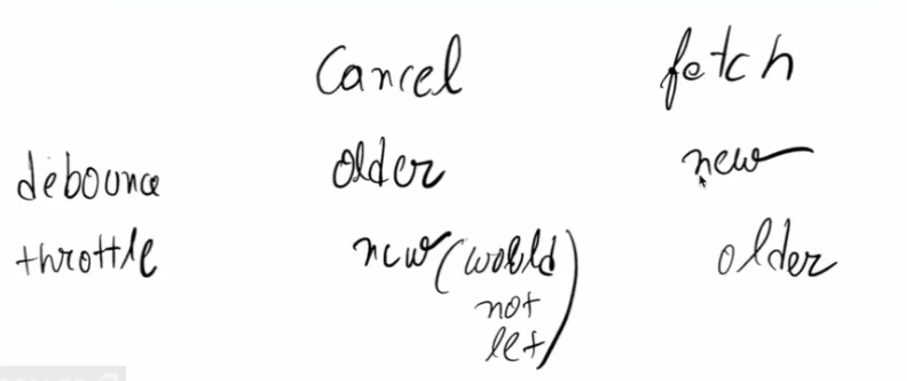 Cancel fetch
debounce older new
throttle new (would older
not
let)